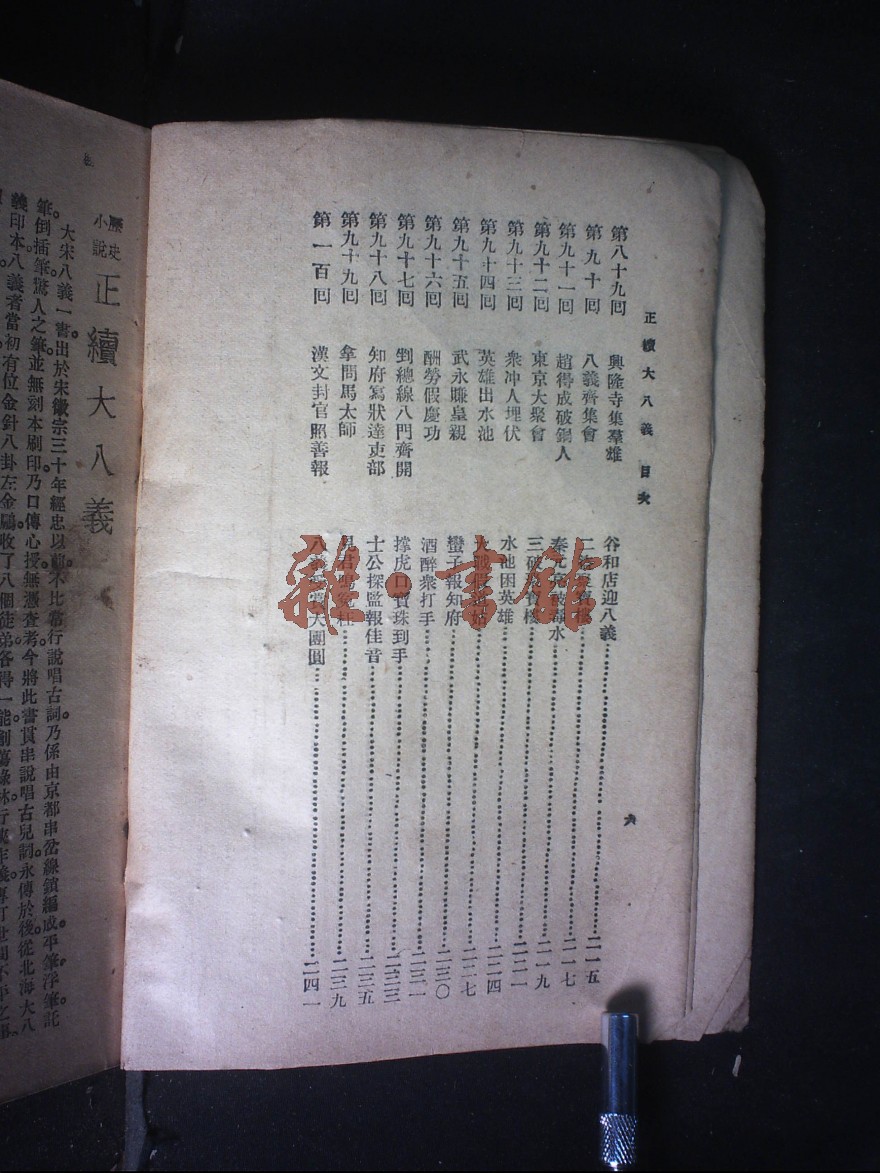 正續大八義 目次
六
第八十九囘 興隆寺集羣雄 谷和店迎八義 二一五
第九十囘 八義齊集會 二 二一七
第九十一囘 趙得成破銅人 秦 水 二一九
第九十二囘 東京大聚會 三破 樓 二二一
第九十三囘 衆冲人埋伏 水池困英雄 二二四
第九十四囘 英雄出水池 火 二二七
第九十五囘 武永賺皇親 蠻子報知府 二三〇
第九十六囘 酬勞假慶功 酒醉衆打手 二三一
第九十七囘 剉總線八門齊開 撑虎口寶珠到手 二三三
第九十八囘 知府寫狀達吏部 士公探監報佳音 二三五
第九十九囘 拿問馬太師 見君 二三九
第一百囘 漢文封官照善報 八 大團圓 二四一
雜·書館
歷史小說 正續大八義
大宋八義一書。出於宋徽宗三十年經忠以前。不比常行說唱古詞。乃係由京都串岔線鎖編成。平筆浮筆託
筆。倒插筆。驚人之筆。並無刻本刷印。乃口傳心授。無憑查考。今將此書貫串說唱古兒詞。永傳於後。從北海大八
義印本。八義者當初有位金針八卦左金鵬。收了八個徒弟。各得一能。